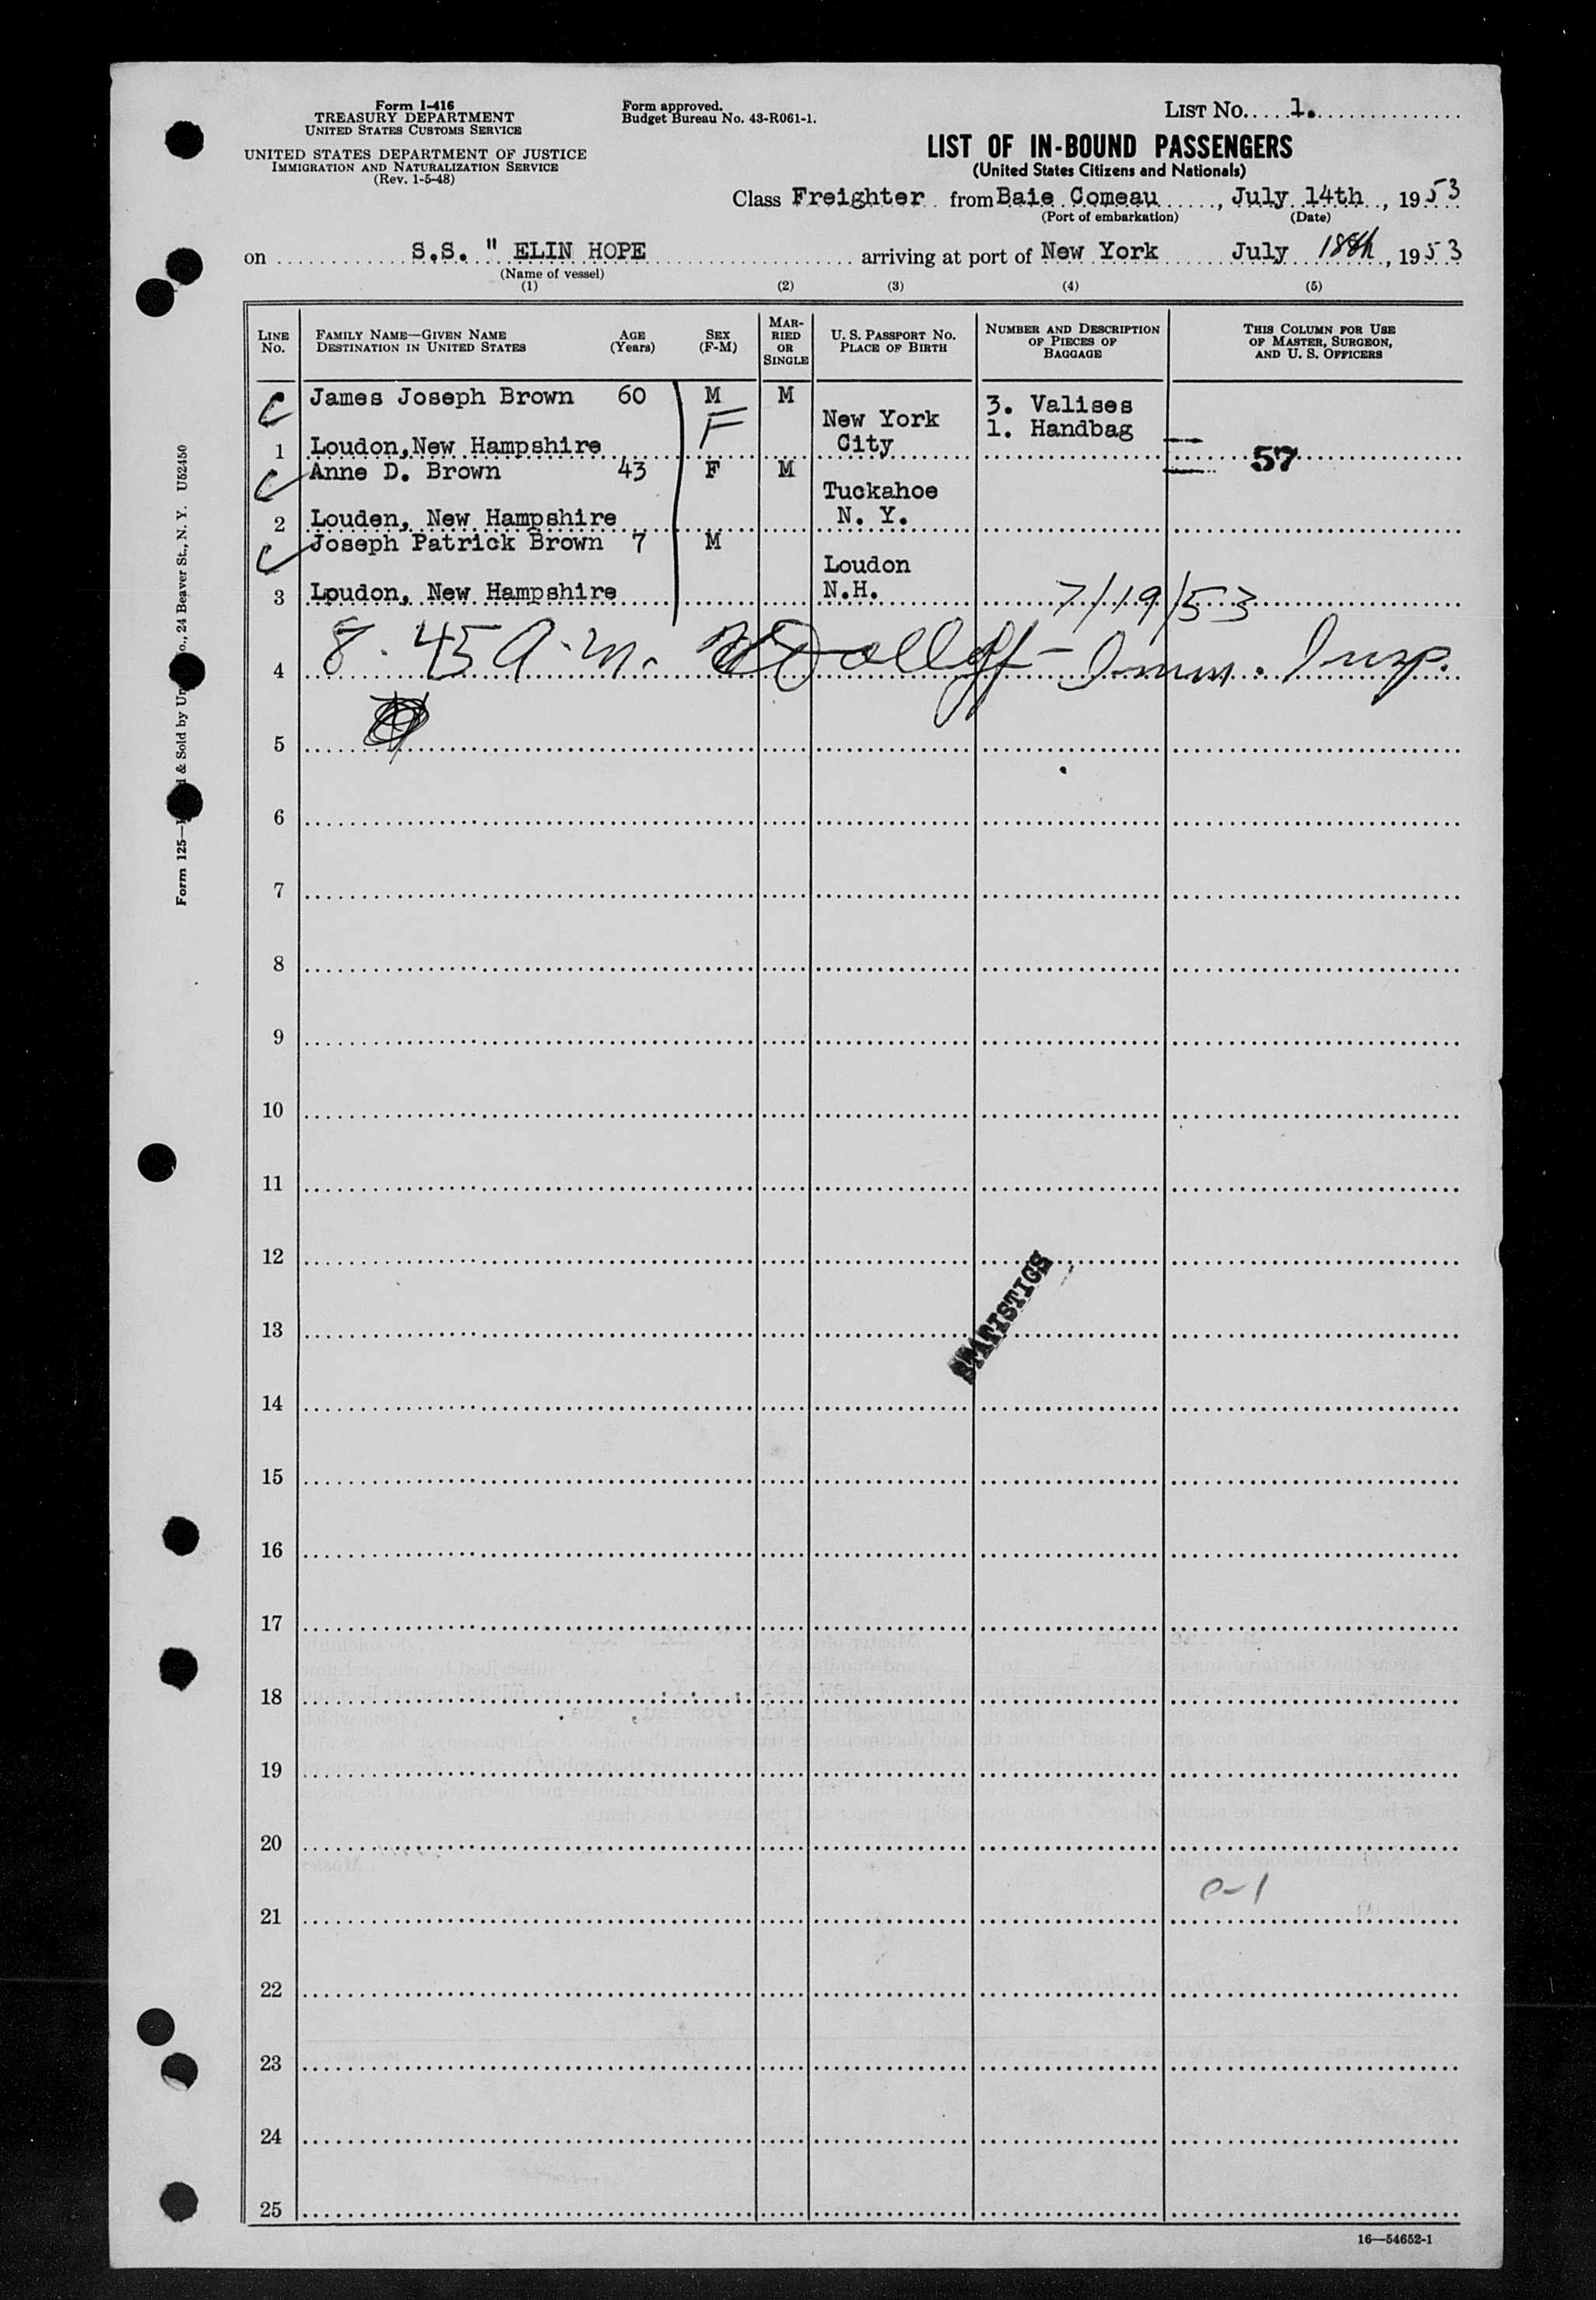 Form I-416
TREASURY DEPARTMENT
UNITED STATES CUSTOMS SERVICE
UNITED STATES DEPARTMENT OF JUSTICE
IMMIGRATION AND NATURALIZATION SERVICE
(Rev. 1-5-48)
Form approved.
Budget Bureau No. 43-R061-1.
LIST No. 1.
LIST OF IN-BOUND PASSENGERS
(United States Citizens and Nationals)
Class Freighter from Baie Comeau, July 14th, 1953
(Port of embarkation) (Date)
on S.S. " ELIN HOPE arriving at port of New York July 18th, 1953
(Name of vessel)
(1) (2) (3) (4) (5)
LINE No. FAMILY NAME—GIVEN NAME DESTINATION IN UNITED STATES AGE (Years) SEX (F-M) MARRIED OR SINGLE U. S. PASSPORT No. PLACE OF BIRTH NUMBER AND DESCRIPTION OF PIECES OF BAGGAGE THIS COLUMN FOR USE OF MASTER, SURGEON, AND U. S. OFFICERS
James Joseph Brown 60 M M
New York 3. Valises
F City 1. Handbag
1 Loudon, New Hampshire
57
Anne D. Brown 43 F M
Tuckahoe
2 Louden, New Hampshire N. Y.
Joseph Patrick Brown 7 M
Loudon
3 Loudon, New Hampshire N.H. 7/19/53
4 8.45 A.m. Imm. Insp.
5
6
7
8
9
10
11
12
STATISTICS
13
14
15
16
17
18
19
20
0-1
21
22
23
24
25
16—54652-1
Form 125— & Sold by Un o., 24 Beaver St., N. Y. U52450